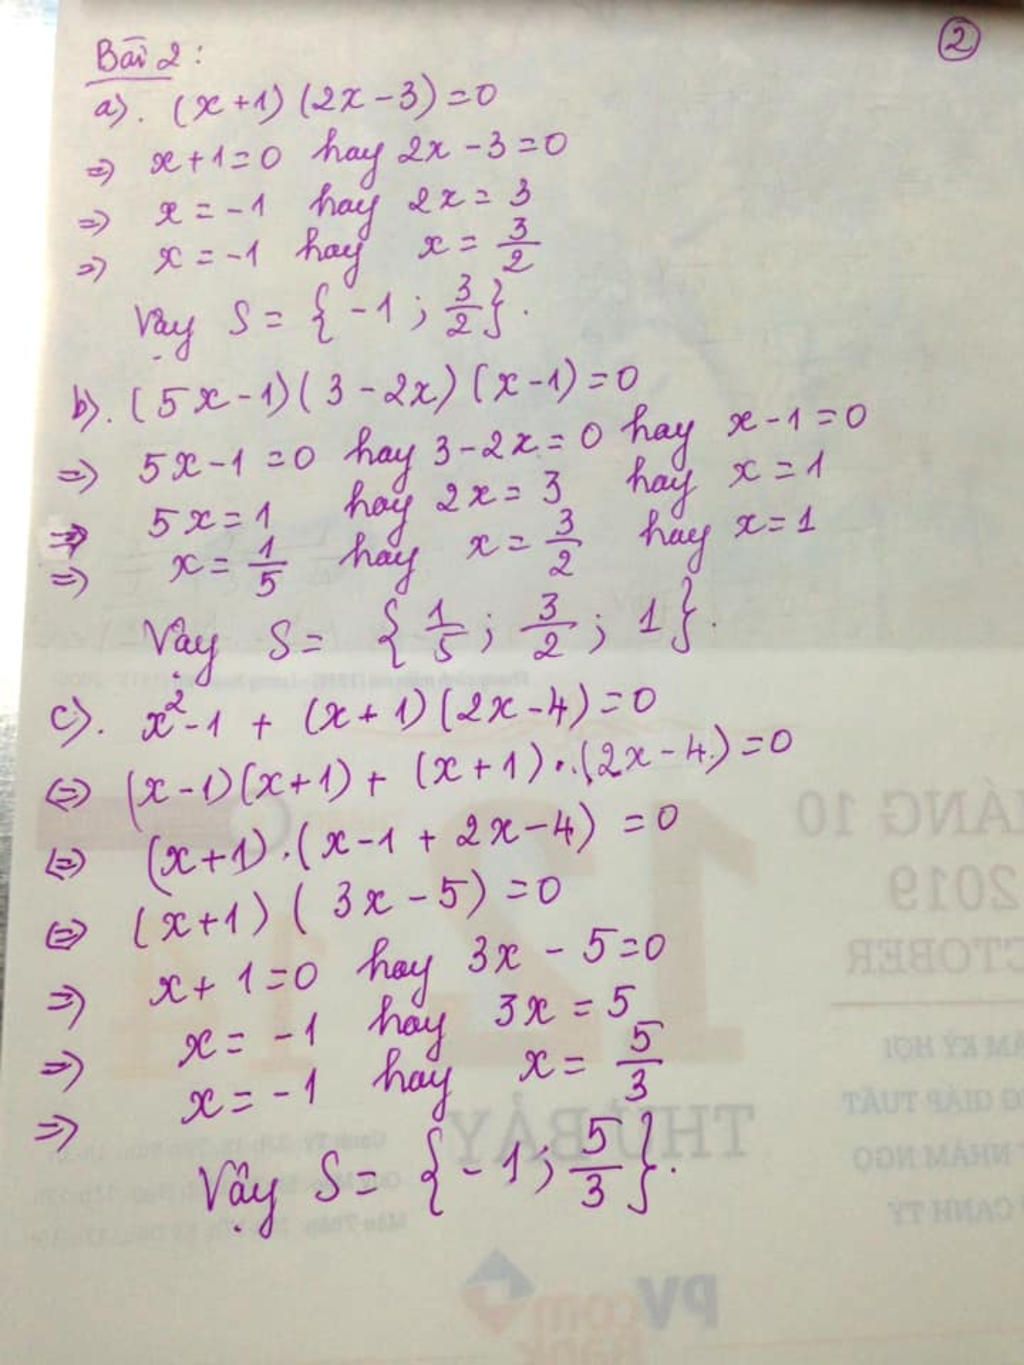 ②
Bài 2:
a). (x+1)(2x-3)=0
=> x+1=0 hay 2x-3=0
=> x=-1 hay 2x=3
=> x=-1 hay x=3/2
Vậy S={-1; 3/2}.
b). (5x-1)(3-2x)(x-1)=0
=> 5x-1=0 hay 3-2x=0 hay x-1=0
=> 5x=1 hay 2x=3 hay x=1
=> x=1/5 hay x=3/2 hay x=1
Vậy S= {1/5; 3/2; 1}.
c). x²-1 + (x+1)(2x-4)=0
<=> (x-1)(x+1)+(x+1).(2x-4)=0
<=> (x+1).(x-1+2x-4)=0
<=> (x+1)(3x-5)=0
=> x+1=0 hay 3x-5=0
=> x=-1 hay 3x=5
=> x=-1 hay x=5/3
Vậy S={-1; 5/3}.
12
10
2019
THỨ BẢY
PV
com
Bank